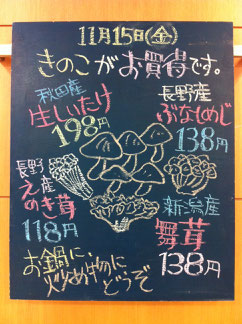 11月15日(金)
きのこがお買得です。
秋田産
生しいたけ
198円
長野産
ぶなしめじ
138円
長野産
えのき茸
118円
新潟産
舞茸
138円
お鍋に、
炒め物に
どうぞ